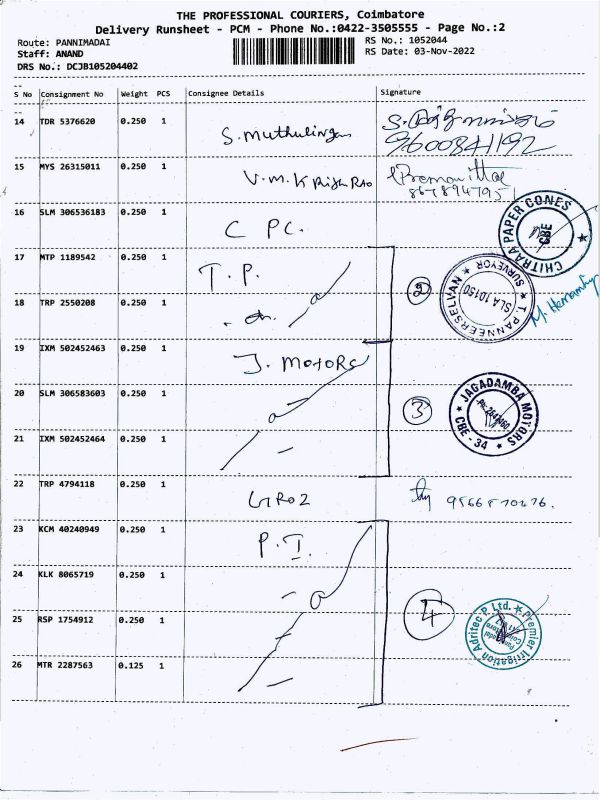 THE PROFESSIONAL COURIERS, Coimbatore
Delivery Runsheet - PCM - Phone No.:0422-3505555 - Page No.:2
Route: PANNIMADAI
RS No.: 1052044
Staff: ANAND
RS Date: 03-Nov-2022
DRS No.: DCJB105204402
S No Consignment No Weight PCS Consignee Details Signature
14 TDR 5376620 0.250 1 S. Muthulingam
9600841192
15 MYS 26315011 0.250 1 V.M.K Rao
16 SLM 306536183 0.250 1 C PC.
CHITRAA PAPER CONES
CBE
17 MTP 1189542 0.250 1 T.P.
2
T. PANNEERSELVAN
SURVEYOR
SLA 10150
18 TRP 2550208 0.250 1
19 IXM 502452463 0.250 1 J. MOTORS
20 SLM 306583603 0.250 1
3
JAGADAMBA MOTORS
CBE - 34
21 IXM 502452464 0.250 1
22 TRP 4794118 0.250 1
23 KCM 40240949 0.250 1 P.I.
24 KLK 8065719 0.250 1
4
25 RSP 1754912 0.250 1
Premier Irrigation Adritec P. Ltd.
26 MTR 2287563 0.125 1